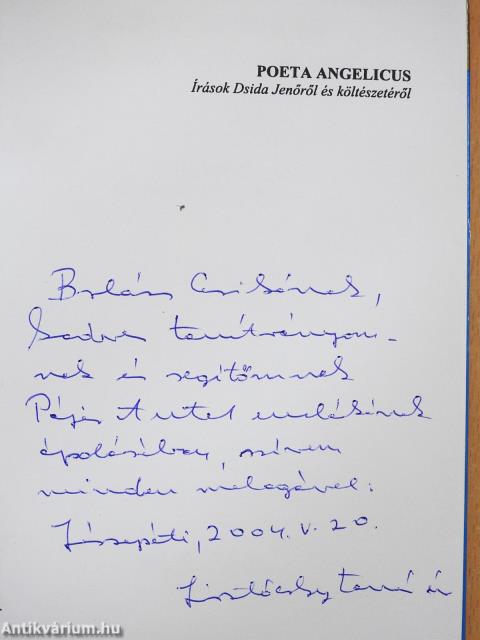 POETA ANGELICUS
Írások Dsida Jenőről és költészetéről
Balázs Csibának,
kedves tanítványom-
nak és segítőmnek
Pájer Antal emlékének
ápolásában, szívem
minden melegével:
Jászapáti, 2004. V. 20.
tanár úr
Antikvárium.hu